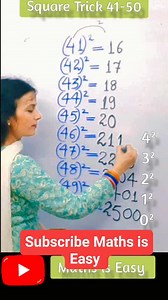 Square Trick 41-50
(41)² = 16
(42)² = 17
(43)² = 18
(44)² = 19
(45)² = 20
(46)² = 211 4²
(47)² = 22 3²
(48)² = 04 2²
(49)² 01 1²
2500 0²
Subscribe Maths is
Easy
Maths is Easy